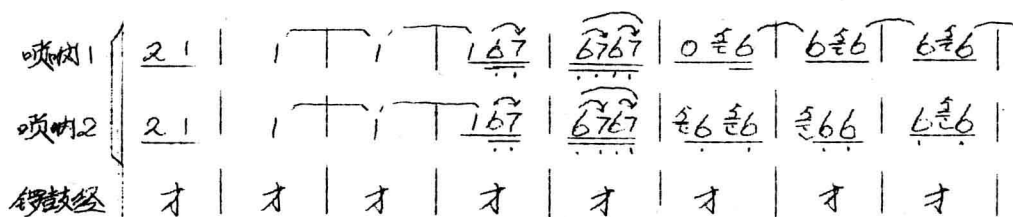 唢呐1 2 1 | 1 | 1 | 1 6 7 | 6 7 6 7 | 0 6 | 6 6 | 6 6 |
唢呐2 2 1 | 1 | 1 | 1 6 7 | 6 7 6 7 | 6 6 | 6 6 | 6 6 |
锣鼓经 才 | 才 | 才 | 才 | 才 | 才 | 才 | 才 |